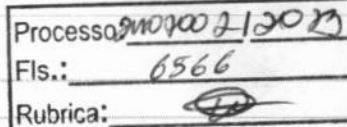 Processo: 2110700 2/2023
Fls.: 6566
Rubrica: